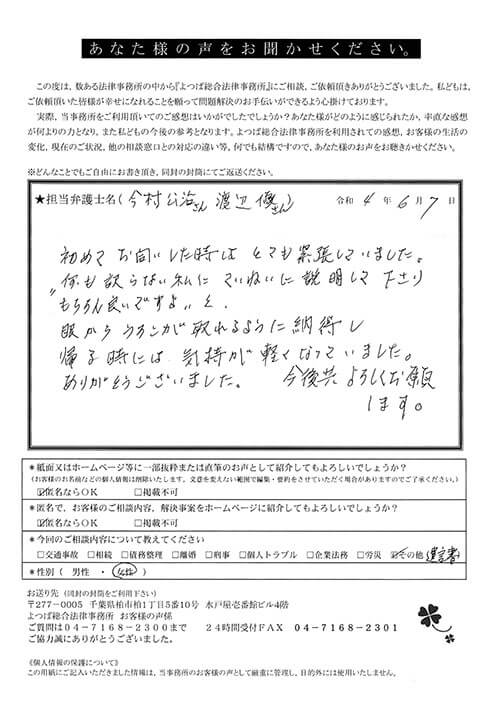 あなた様の声をお聞かせください。
この度は、数ある法律事務所の中から『よつば総合法律事務所』にご相談、ご依頼頂きありがとうございました。私どもは、
ご依頼頂いた皆様が幸せになれることを願って問題解決のお手伝いができるよう心掛けております。
実際、当事務所をご利用頂いてのご感想はいかがでしたでしょうか？あなた様がどのように感じられたか、率直な感想
が何よりの力となり、また私どもの今後の参考となります。よつば総合法律事務所を利用されての感想、お客様の生活の
変化、現在のご状況、他の相談窓口との対応の違い等、何でも結構ですので、あなた様のお声をお聴きかせください。
※どんなことでもご自由にお書き頂き、同封の封筒にてご返送ください。
★担当弁護士名(今村公治さん 渡辺優さん) 令和 4 年 6 月 7 日
初めて お伺いした時は とても緊張していました。
何も訳らない私に ていねいに 説明して 下さり
"もちろん良いですよ"と、
眼から うろこが 取れるように 納得し
帰る時には 気持が 軽くなっていました。
ありがとうございました。 今後共 よろしくお願
します。
＊紙面又はホームページ等に一部抜粋または直筆のお声として紹介してもよろしいでしょうか？
(お客様のお名前などの個人情報は削除いたします。文意を変えない範囲で編集・要約をさせていただく場合がありますのでご了承ください。)
☑匿名ならＯＫ □掲載不可
＊匿名で、お客様のご相談内容、解決事案をホームページに紹介してもよろしいでしょうか？
☑匿名ならＯＫ □掲載不可
＊今回のご相談内容について教えてください
□交通事故 □相続 □債務整理 □離婚 □刑事 □個人トラブル □企業法務 □労災 ☑その他 遺言書
＊性別 ( 男性 ・ 女性 )
お送り先（同封の封筒をご利用下さい）
〒277-0005 千葉県柏市柏1丁目5番10号 水戸屋壱番館ビル4階
よつば総合法律事務所 お客様の声係
ご質問は04-7168-2300まで 24時間受付FAX 04-7168-2301
ご協力誠にありがとうございました。
《個人情報の保護について》
この用紙にご記入いただきました情報は、当事務所のお客様の声として厳重に管理し、目的外には使用いたしません。